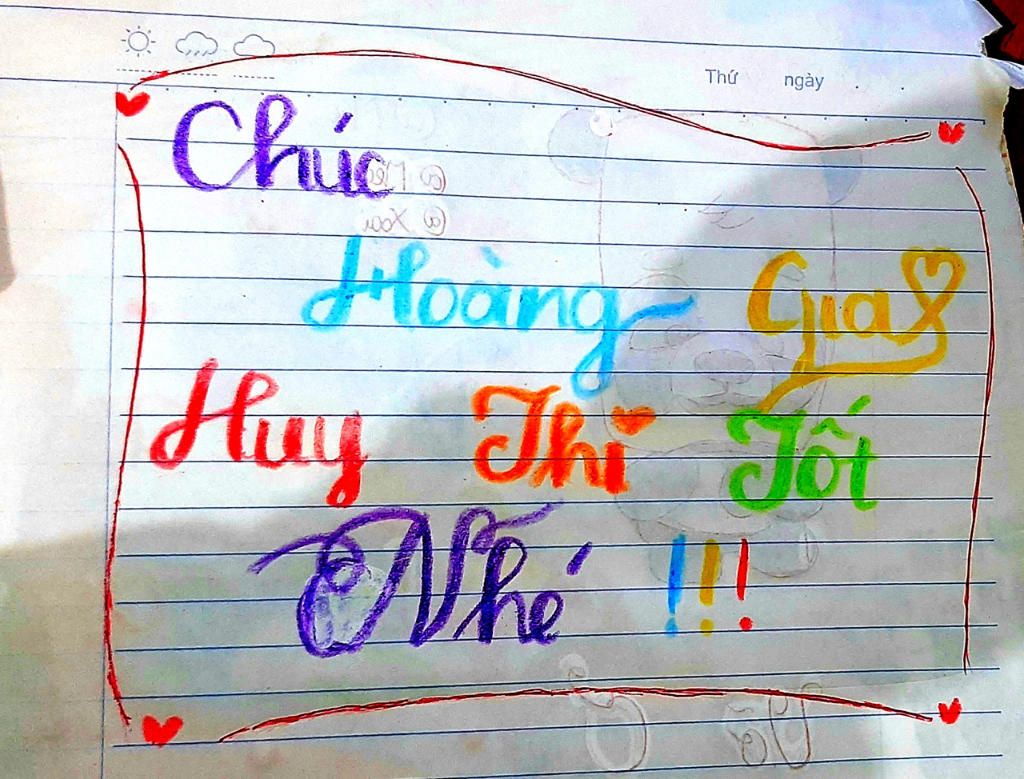 Thứ ngày
Chúc
Hoàng Gia
Huy Thi Tốt
Nhé !!!